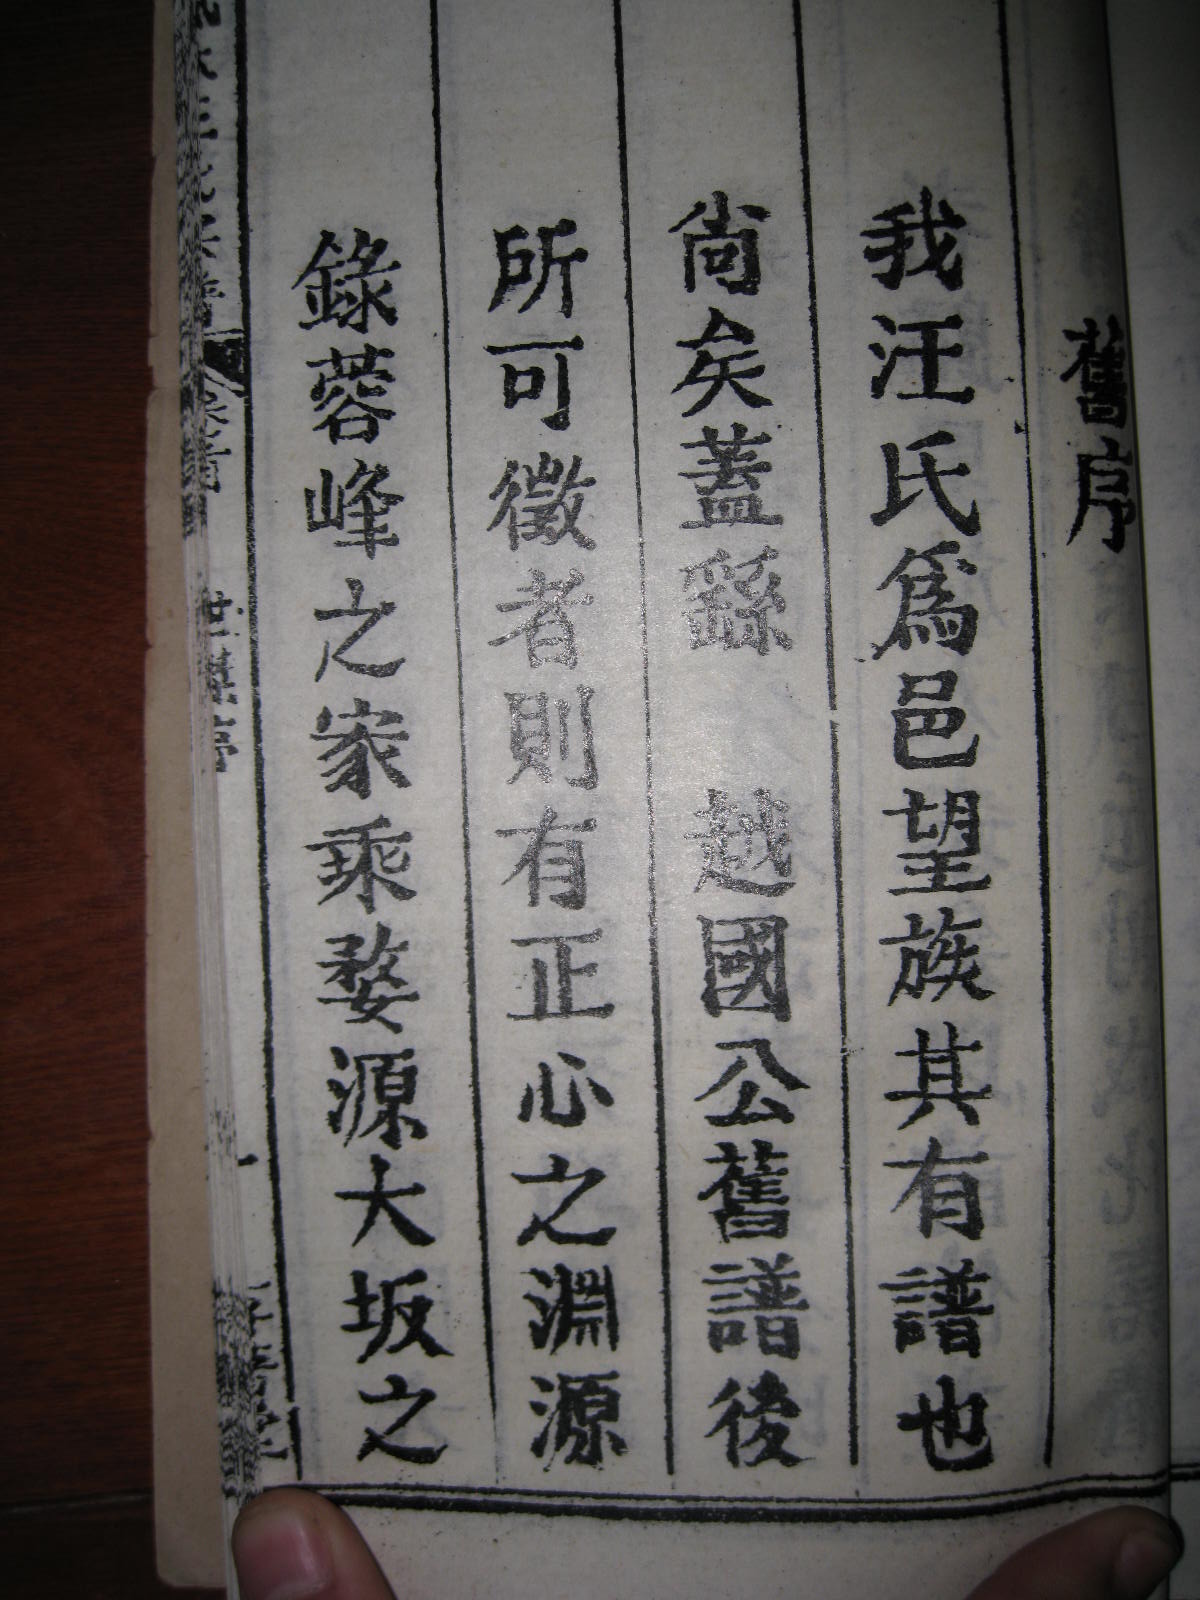 舊序
我汪氏爲邑望族其有譜也
尚矣蓋繇 越國公舊譜後
所可徵者則有正心之淵源
錄蓉峰之家乘婺源大坂之
卷首